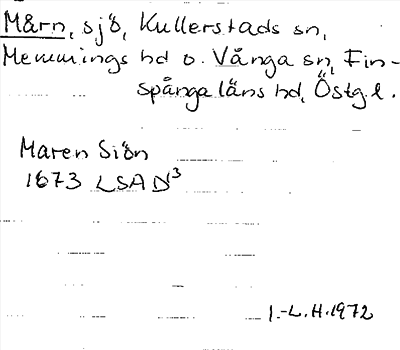 Mårn, sjö, Kullerstads sn,
Memmings hd o. Vånga sn, Fin-
spånga läns hd, Östg.l.
Maren Siön
1673 LSA D³
I.-L.H. 1972